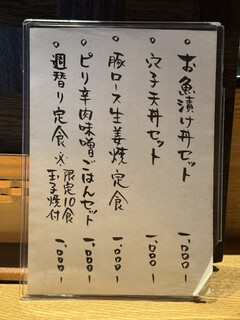 。お魚漬け丼セット 1,000-
。穴子天丼セット 1,000-
。豚ロース生姜焼定食 1,000-
。ピリ辛肉味噌ごはんセット 1,000-
。週替り定食 ※限定10食 玉子焼付 1,000-